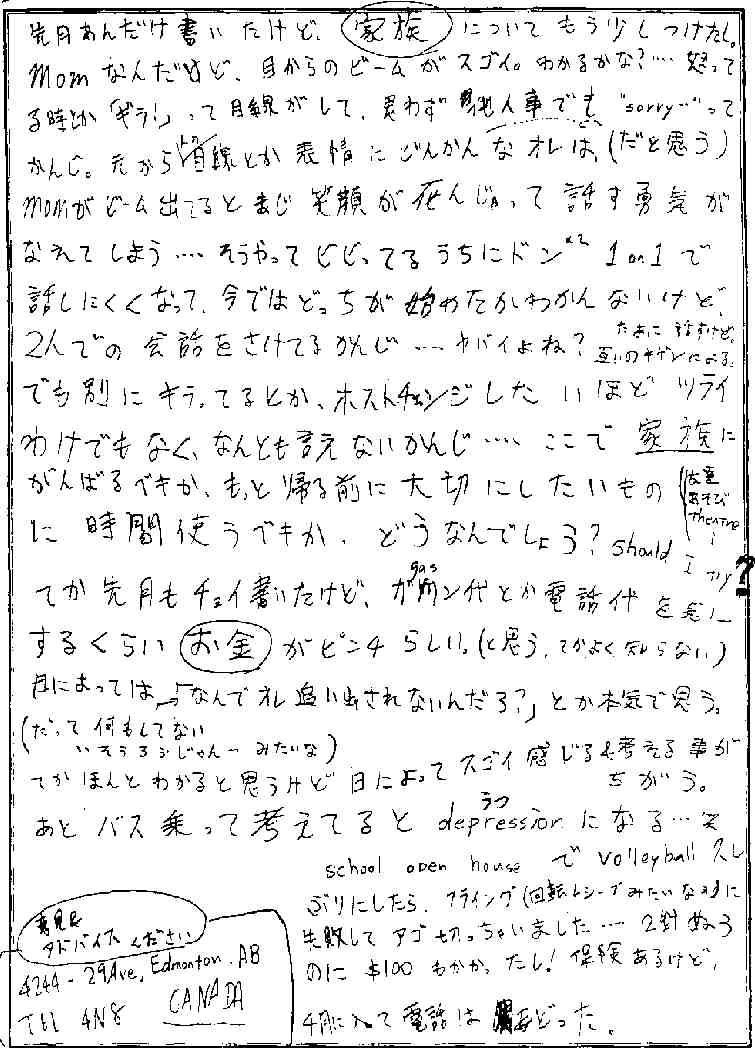 先月あんだけ書いたけど、家族についてもう少しつけたし。
Momなんだけど、目からのビームがスゴイ。わかるかな?…怒って
る時とか「ギラ!」って目線がして、思わず他人事でも"sorry…"って
かんじ。元から目線とか表情にどんかんなオレは、(だと思う)
Momがビーム出てるとまじ笑顔が死んじゃって話す勇気が
なえてしまう…。そうやってビビってるうちにドンx2 1 on 1で
話しにくくなって、今ではどっちが始めたかわかんないけど、
2人での会話をさけてるかんじ…ヤバイよね?
たまに話すけど、
互いのキゲンによる。
でも別にキラってるとか、ホストチェンジしたいほどツライ
わけでもなく、なんとも言えないかんじ…。ここで家族に
がんばるべきか、もっと帰る前に大切にしたいもの
(友達
あそび
theatre
に時間使うべきか、どうなんでしょう? should I try?
てか先月もチョイ書いたけど、ガソリン代とか電話代を気に
gas
するくらいお金がピンチらしい。(と思う、てかよく知らない)
日によっては、「なんでオレ追い出されないんだろ?」とか本気で思う。
(だって何もしてない
いそうろうじゃん… みたいな)
てかほんとわかると思うけど日によってスゴイ感じる&考える事が
ちがう。
あとバス乗って考えてるとdepressionになる…笑
うつ
school open houseでvolleyball久し
ぶりにしたら、フライング(回転レシーブみたいなの)に
失敗してアゴ切っちゃいました…2針ぬう
のに$100もかかったし!保険あるけど、
4月に入って電話はあどった。
意見&
アドバイスください
4244-29Ave, Edmonton, AB
T6L 4N8 CANADA